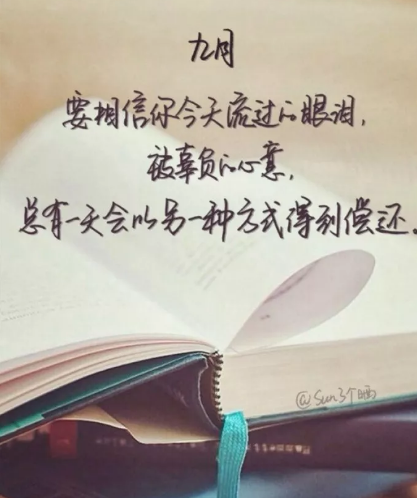 九月
要相信你今天流过的眼泪,
被辜负的心意,
总有一天会以另一种方式得到偿还.
@Sun3个晒